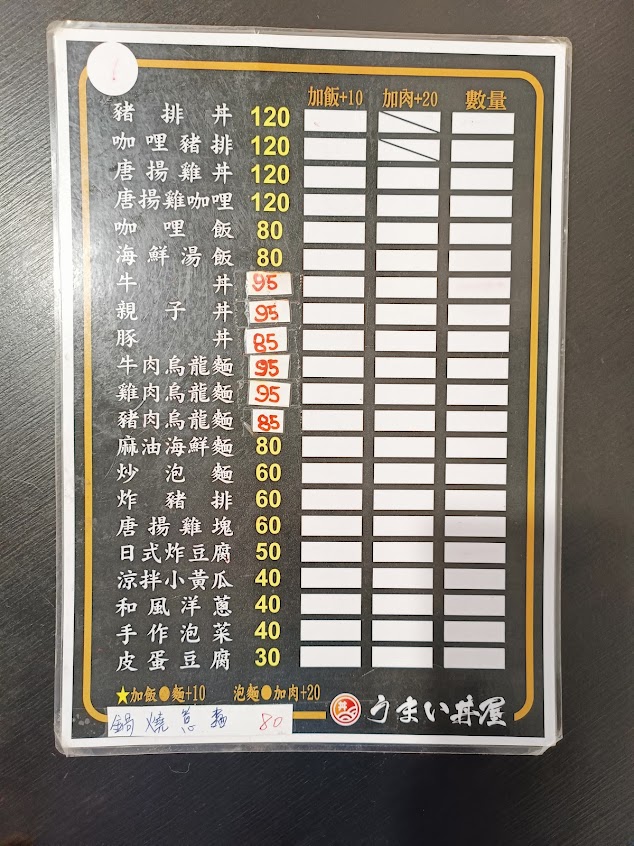 加飯+10 加肉+20 數量
豬排丼 120
咖哩豬排 120
唐揚雞丼 120
唐揚雞咖哩 120
咖哩飯 80
海鮮湯飯 80
牛丼 95
親子丼 95
豚丼 85
牛肉烏龍麵 95
雞肉烏龍麵 95
豬肉烏龍麵 85
麻油海鮮麵 80
炒泡麵 60
炸豬排 60
唐揚雞塊 60
日式炸豆腐 50
涼拌小黃瓜 40
和風洋蔥 40
手作泡菜 40
皮蛋豆腐 30
★加飯●麵+10 泡麵●加肉+20
鍋燒意麵 80
丼 うまい丼屋